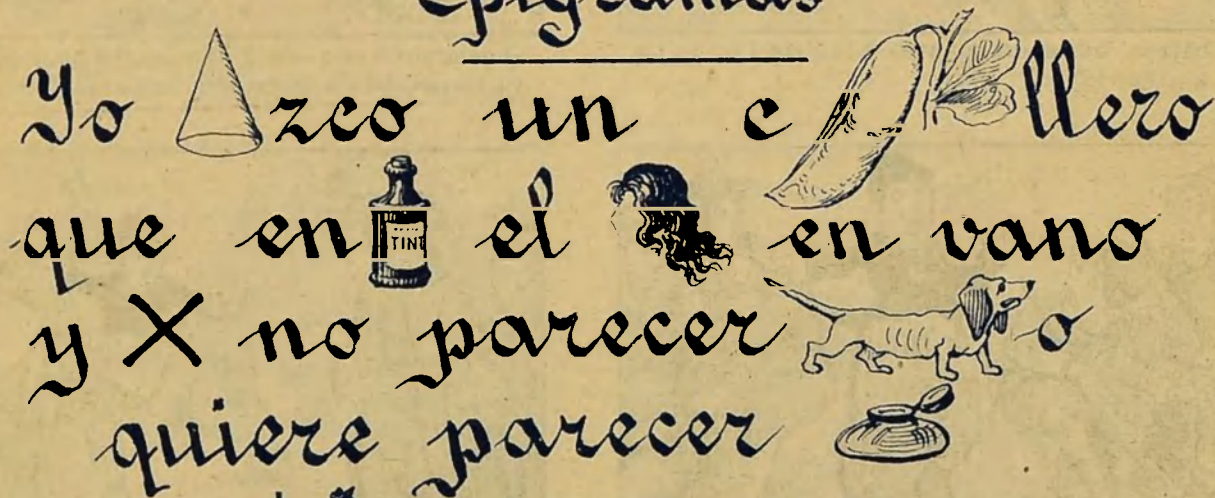 Epigramas
Yo zco un c llero
que en TINT el en vano
y X no parecer o
quiere parecer